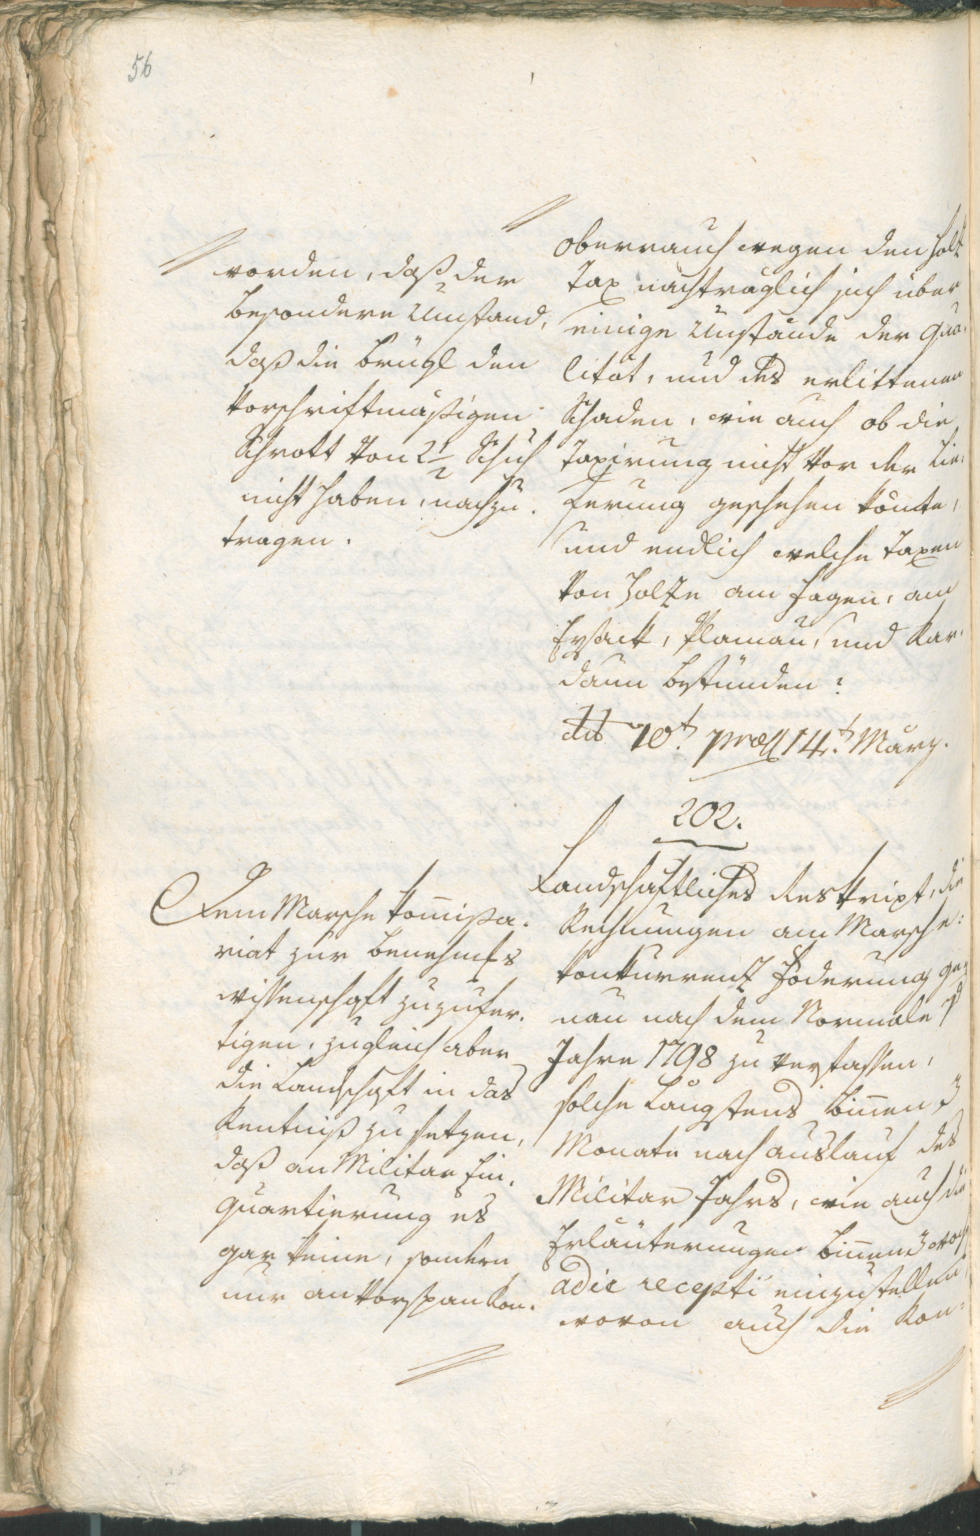 56
worden, daß der
besondere Umstand,
daß die Brügl den
vorschriftmäßigen
Schrott von 2 1/2 Schuh
nicht haben, nachzu-
tragen.
Oberrauch wegen den Holz
Tax nachträglich sich über
einige Umstände der Qua-
lität, und des erlittenen
Schaden, wie auch ob die
Taxirung nicht vor der Lie-
ferung geschehen könnte,
und endlich welche Taxen
von Holze am Hagen, am
Eysack, Plamau, und Kar-
daun bestünden?
dto 10t. præs 14t. März.
202.
Dem Marsche Kommißa-
riat zur Benehmens
wissenschaft zuzufer-
tigen, zugleich aber
die Landschaft in das
Kentniß zu setzen,
daß an Militar Ein-
quartierung es
gar keine, sondern
nur an Vorspan Kon-
Landschaftliches Reskript, die
Rechnungen am Marsche-
konkurrenz Foderung ge-
nau nach dem Normale
Jahre 1798 zu verfassen,
solche Längstens binnen 3
Monate nach auslauf des
Militar Jahrs, wie auch die
Erläuterungen binnen 3
a die recepti einzustellen
wovon auch die Kon-